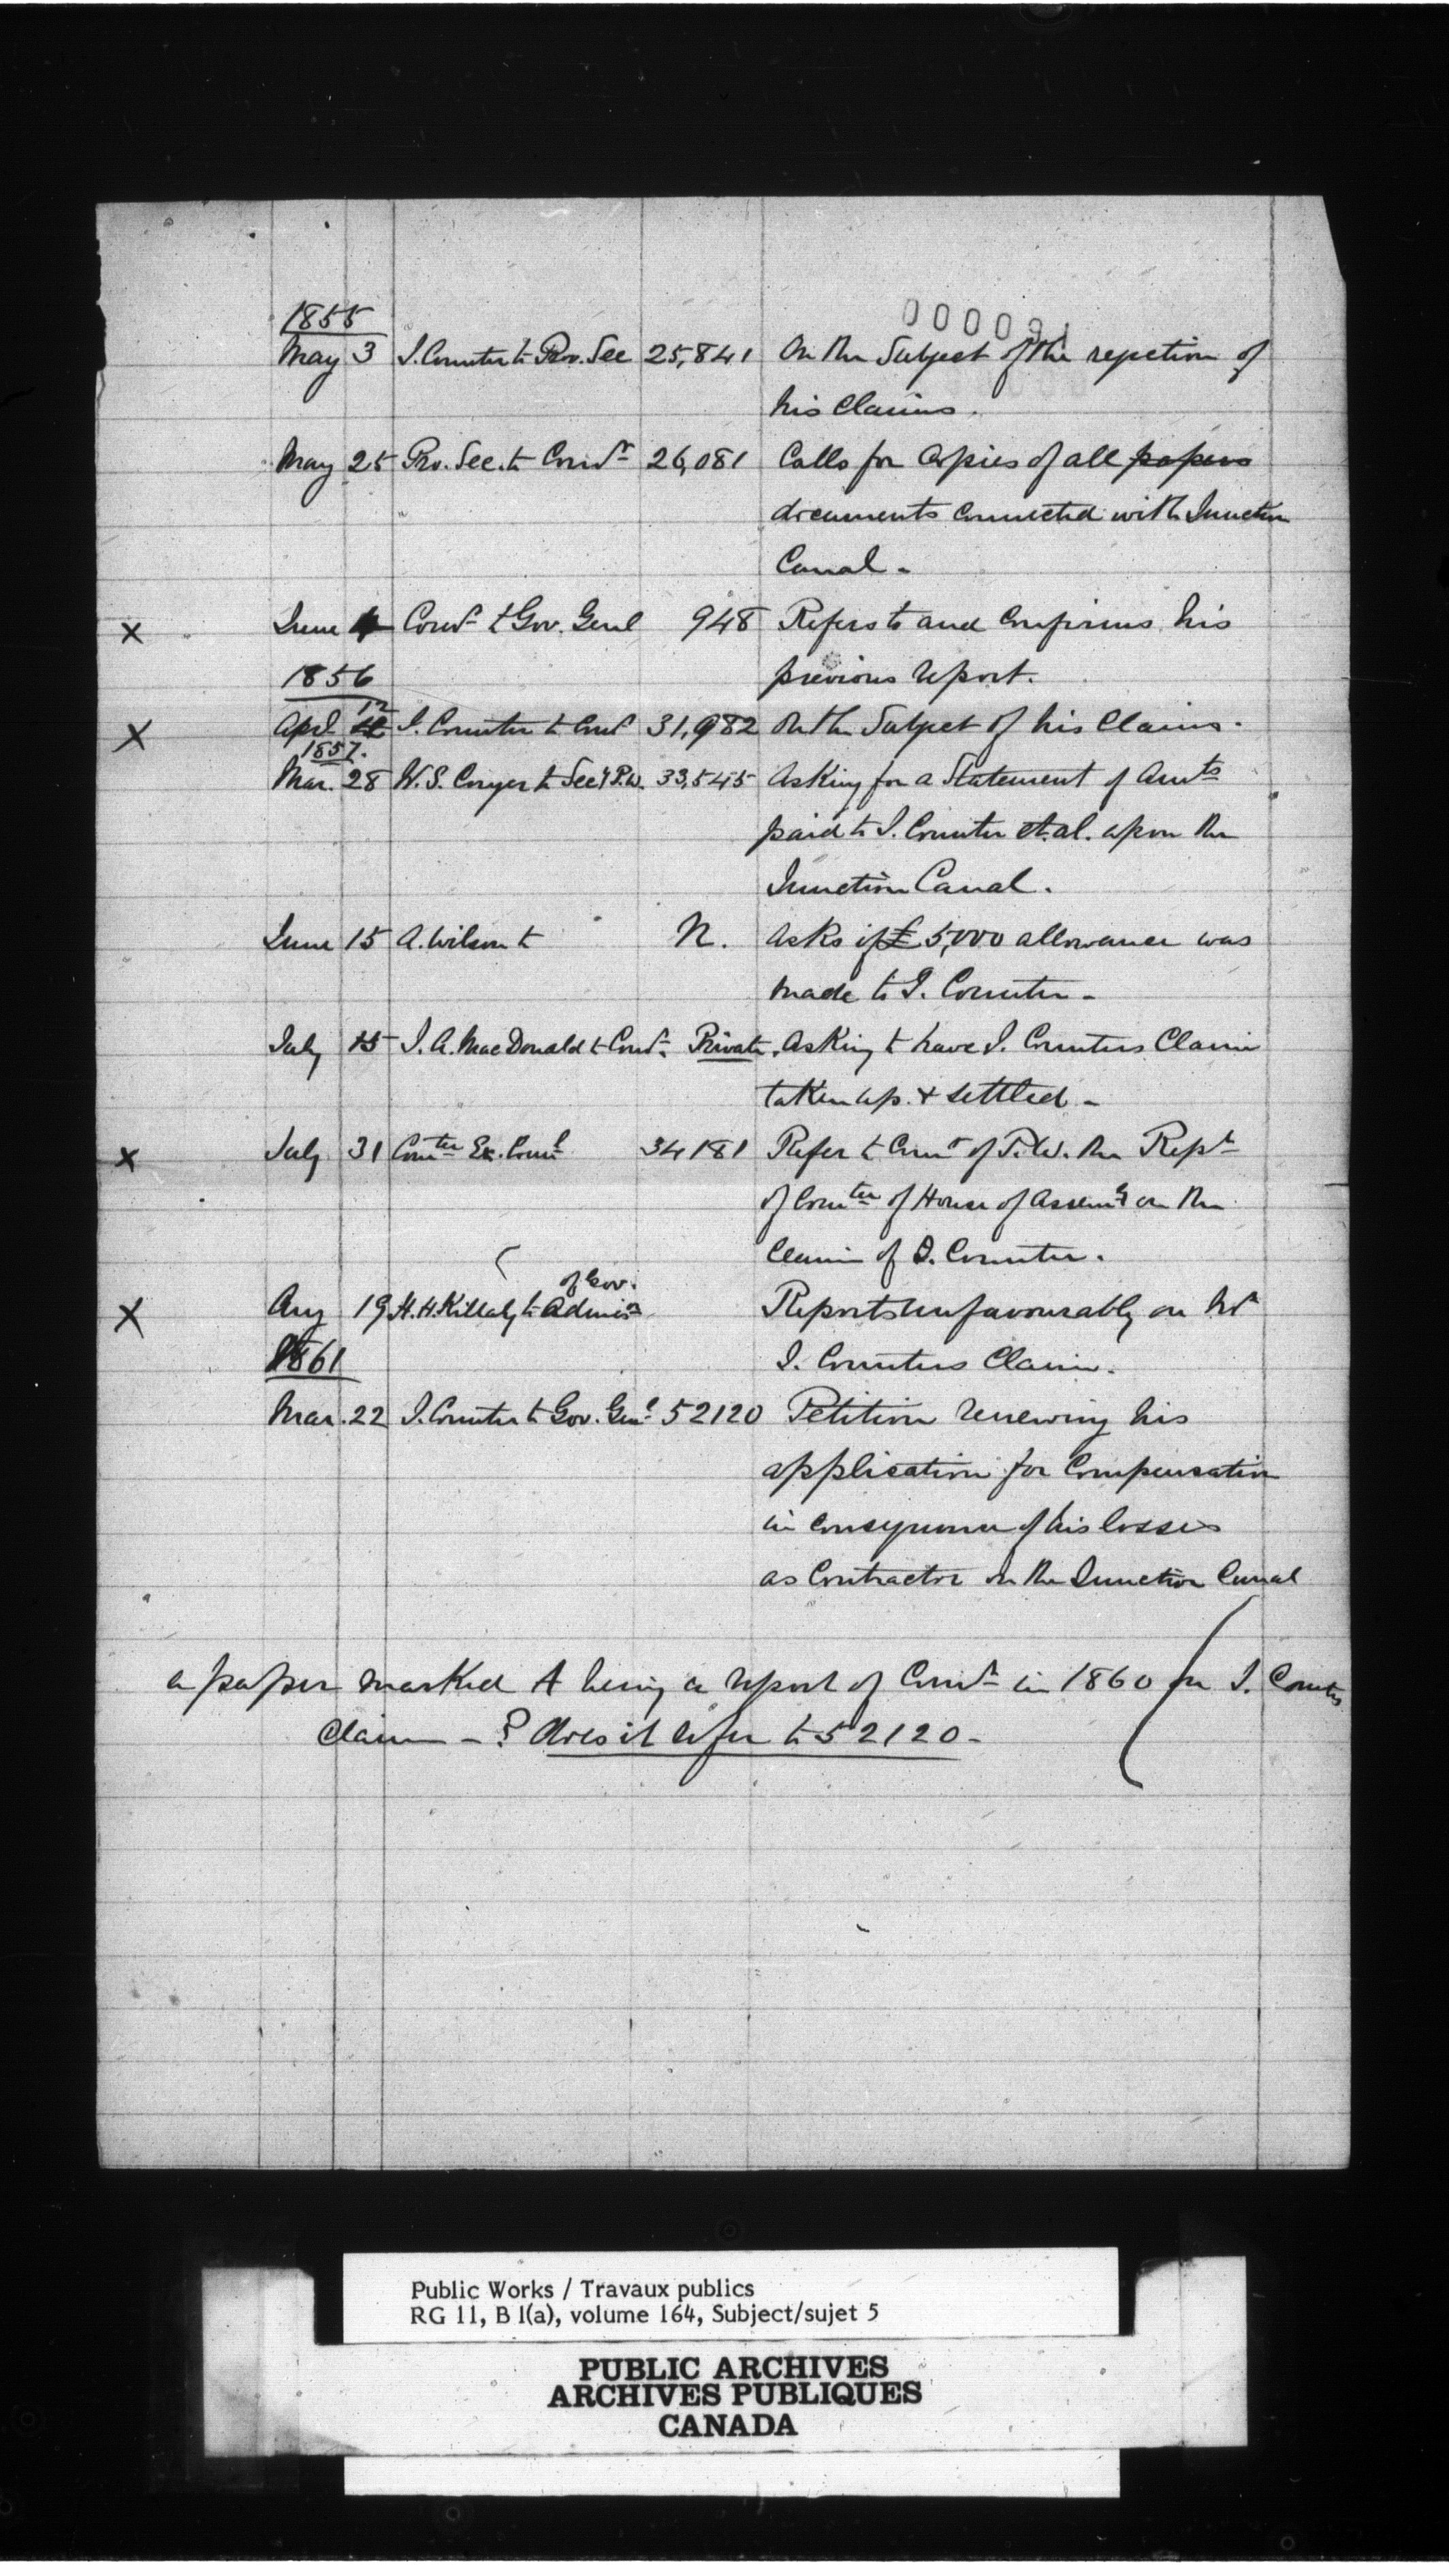 000091
1855
May 3 J. Counter to Prov. Sec 25,841 On the Subject of the rejection of
his Claims.
May 25 Pro. Sec. to Comrs 26,081 Calls for Copies of all papers
documents connected with Junction
Canal -
x June 4 Comrs to Gov. Genl 948 Refers to and Confirms his
1856 previous report.
x Apl 12 J. Counter to Comrs 31,982 On the Subject of his Claims.
1857.
Mar. 28 W. S. Conger to Secy P.W. 33,545 Asking for a Statement of Amts
paid to J. Counter et. al. upon the
Junction Canal.
June 15 A. Wilson to N. Asks if £5,000 allowance was
made to J. Counter -
July 15 J. A. MacDonald to Comrs. Private. Asking to have J. Counters Claim
taken up. & settled -
x July 31 Comtee Ex. Councl 34181 Refer to Comrs of P.W. the Rept
of Comtee of House of Assemy on the
Claim of J. Counter.
of Gov.
x Aug 19 H. H. Killaly to Adminr Reports unfavourably on Mr
1861 J. Counters Claim.
Mar. 22 J. Counter to Gov. Genl 52120 Petition renewing his
application for Compensation
in consequence of his losses
as Contractor on the Junction Canal
a paper marked A being a report of Comrs in 1860 on J. Counters
Claim - ? does it refer to 52120 -
Public Works / Travaux publics
RG 11, B 1(a), volume 164, Subject/sujet 5
PUBLIC ARCHIVES
ARCHIVES PUBLIQUES
CANADA